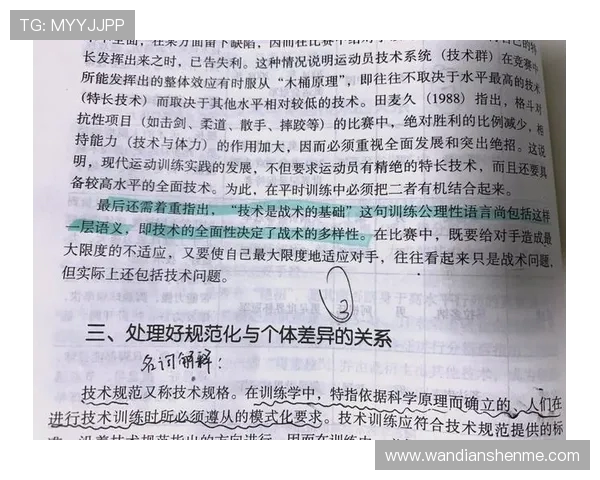 TG: MYYJJPP
个全面，在某方面留下缺陷，因而在比赛中给对
长发挥出来之时，已告失利。这种情况说明运动员技术系统（技术群）在竞赛中
所能发挥出的整体效应有时服从“木桶原理”，即往往不取决于水平最高的技术
（特长技术）而取决于其他水平相对较低的技术。田麦久（1988）指出，格斗对
抗性项目（如击剑、柔道、散手、摔跤等）的比赛中，绝对胜利的比例减少，相
持能力（技术与体力）的作用加大，因而必须重视全面发展和突出绝招。这说
明，现代运动训练实践的发展，不但要求运动员有精绝的特长技术，而且还要具
备较高水平的全面技术。为此，在平时训练中必须把二者有机结合起来。
最后还需着重指出，“技术是战术的基础”这句训练公理性语言尚包括这样
一层语义，即技术的全面性决定了战术的多样性。在比赛中，既要给对手造成最
大限度的不适应，又要使自己最大限度地适应对手，往往看起来只是战术问题，
但实际上还包括技术问题。
3
三、处理好规范化与个体差异的关系
名词解释：
技术规范又称技术规格。在训练学中，特指依据科学原理而确立的、人们在
进行技术训练时所必须遵从的模式化要求。技术训练应符合技术规范提供的标
准，沿着技术规范指出的方向进行，因而在训练中
https://www.wandianshenme.com